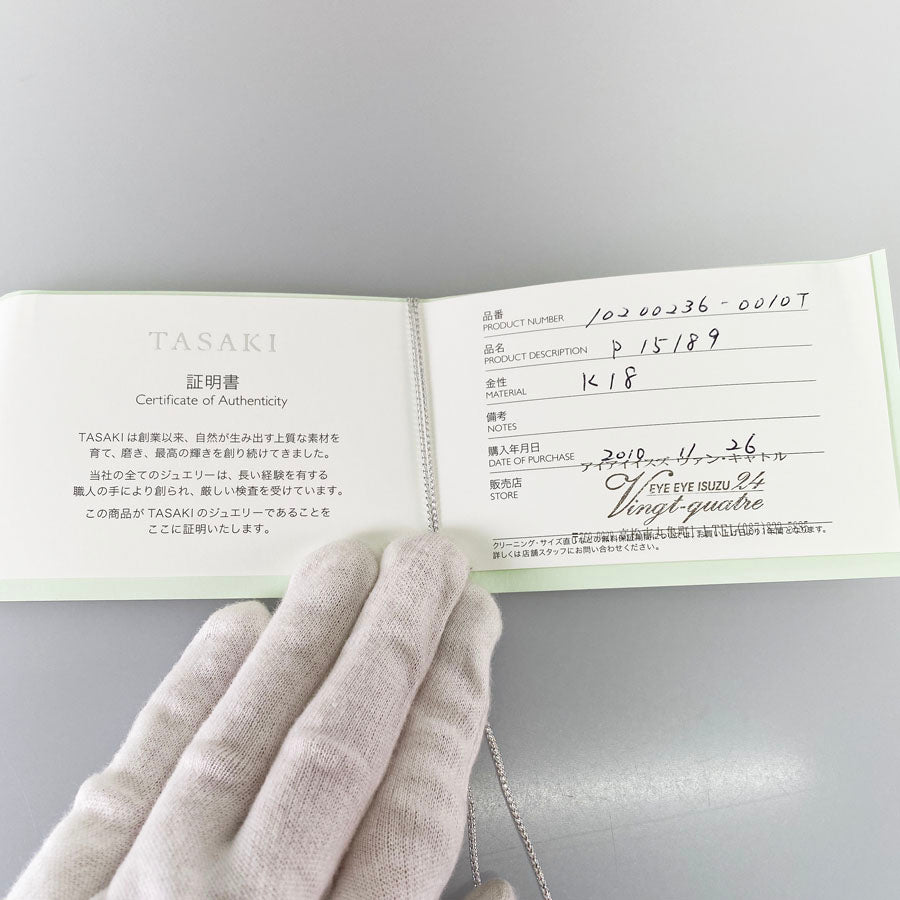 TASAKI
証明書
Certificate of Authenticity
TASAKIは創業以来、自然が生み出す上質な素材を
育て、磨き、最高の輝きを創り続けてきました。
当社の全てのジュエリーは、長い経験を有する
職人の手により創られ、厳しい検査を受けています。
この商品がTASAKIのジュエリーであることを
ここに証明いたします。
品番
PRODUCT NUMBER 10200236-0010T
品名
PRODUCT DESCRIPTION P 15189
金性
MATERIAL K18
備考
NOTES
購入年月日
DATE OF PURCHASE 2010 11 26
アイアイイスズ ヴァン・キャトル
販売店
STORE
EYE EYE ISUZU 24
Vingt-quatre
クリーニング・サイズ直しなどの無料保証期間については、お買い上げ日より1年間となります。
詳しくは店舗スタッフにお問い合わせください。